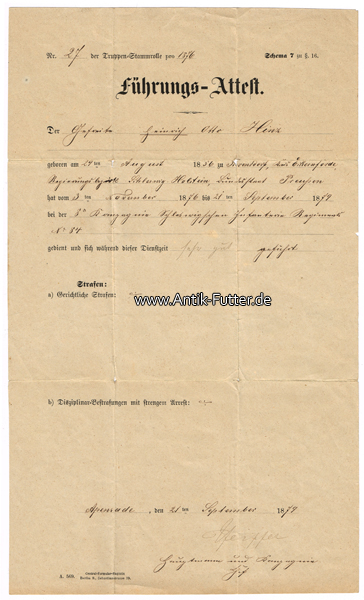 Nr. 27 der Truppen-Stammrolle pro 1876
Schema 7 zu § 16.
Führungs-Attest.
Der Gefreite Heinrich Otto Hinz
geboren am 24ten August 1856 zu Eckernförde
Regierungsbezirk Schleswig Holstein, Bundesstaat Preussen
hat vom 3ten November 1876 bis 21ten September 1879
bei der 8n Kompagnie Schleswigschen Infanterie Regiments
No 84
gedient und sich während dieser Dienstzeit sehr gut geführt.
Strafen:
a) Gerichtliche Strafen:
www.Antik-Futter.de
b) Disziplinar-Bestrafungen mit strengem Arrest:
Apenrade, den 21ten September 1879
Hauptmann und Kompagnie
Chef
A. 509.